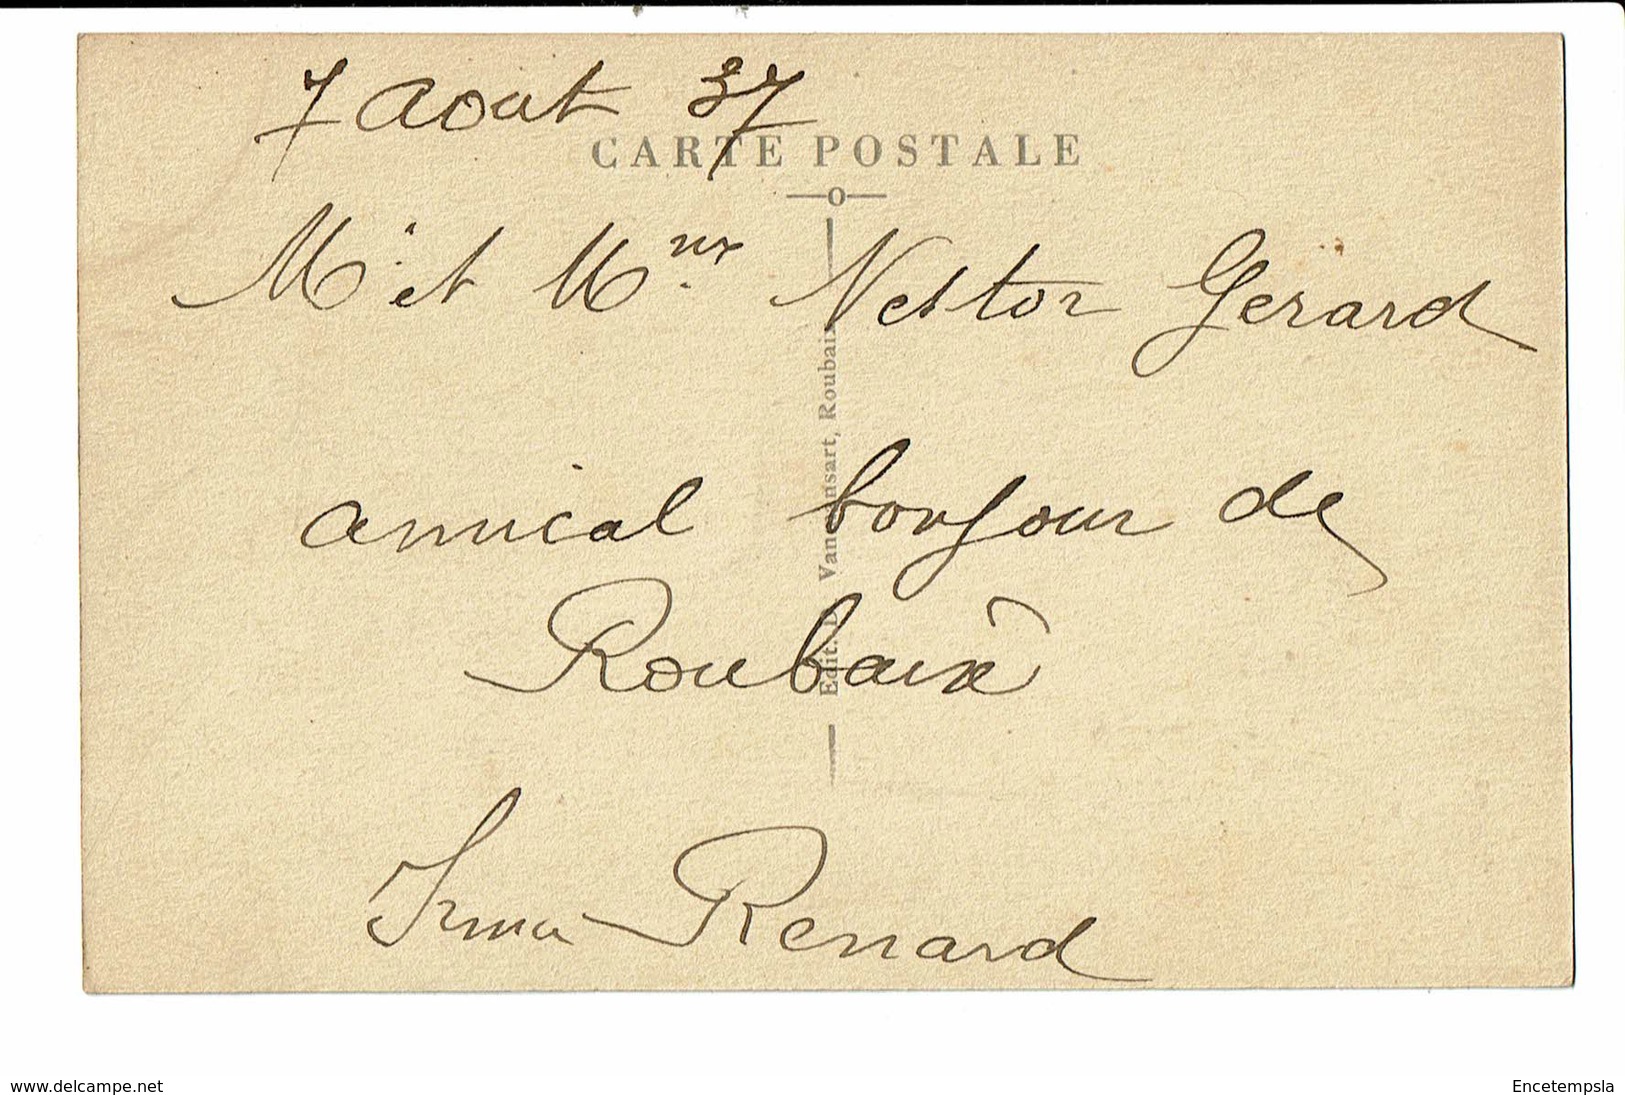 7 Aout 37
CARTE POSTALE
o
Mr et Mme Nestor Gerard
amical bonjour de
Roubaix
Irma Renard
Edit. D. Vansart, Roubaix
www.delcampe.net
Encetempsla